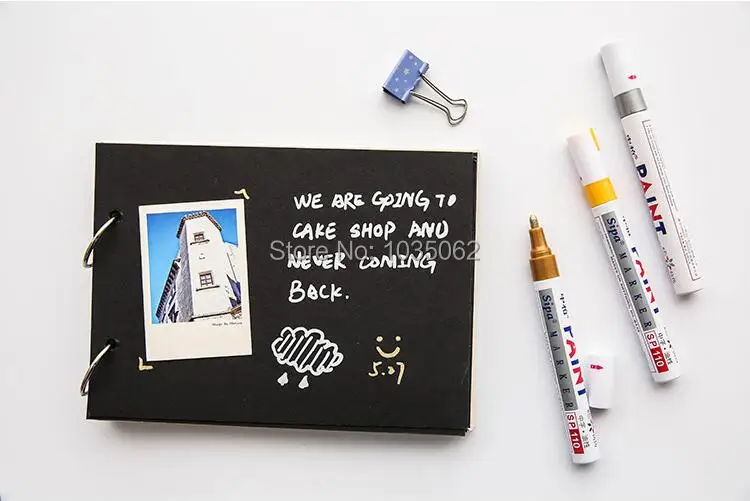 WE ARE GOING TO
CAKE SHOP AND
Store No: 1035062
NEVER COMING
BACK.
5.27
Sipa MARKER
PAINT
SP 110
Sipa MARKER
PAINT
SP 110
PAINT